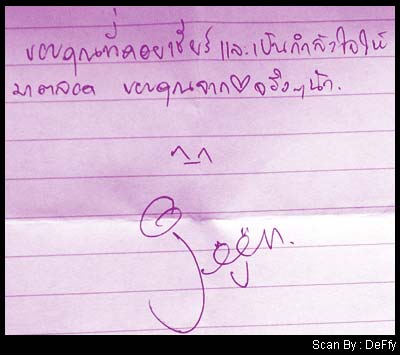 ขอบคุณที่คอยเชียร์ และเป็นกำลังใจให้
มาตลอด ขอบคุณจาก♡จริงๆน้า.
^_^
Scan By : DeFfy